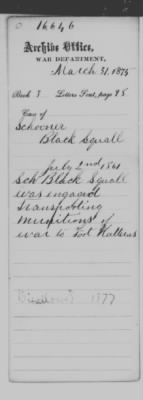 16646
Archive Office,
WAR DEPARTMENT,
March 31, 1875
Book 3 Letters Sent, page 98
Schooner
Black Squall
July 2nd 1861
Sch Black Squall
was engaged
transporting
munitions of
war to Fort Hatteras
1877